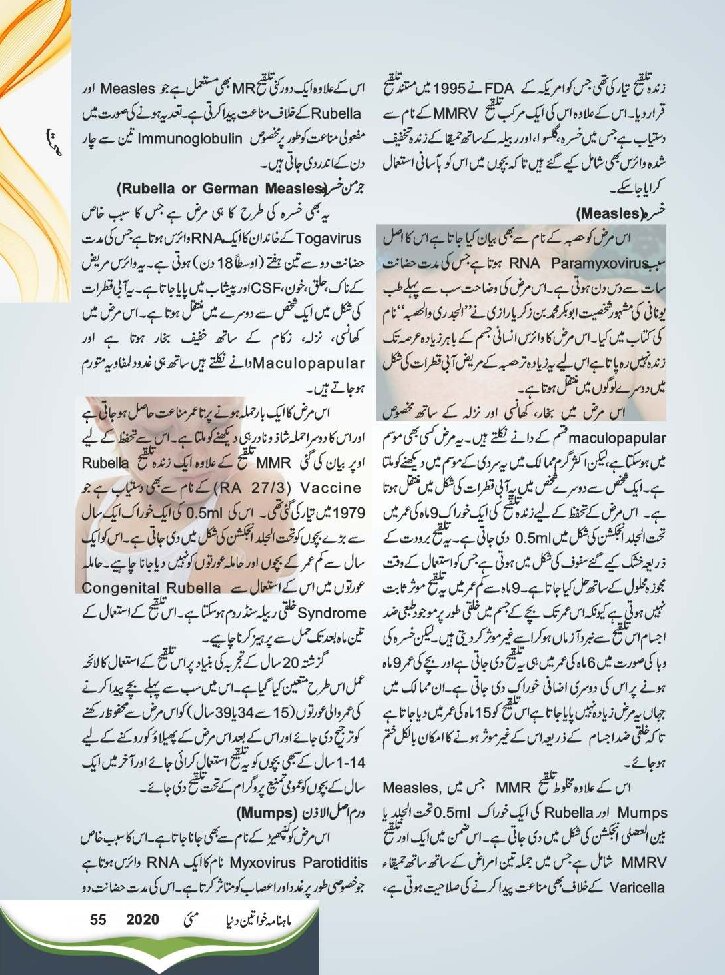 زندہ تلقیح تیار کی تھی جس کو امریکہ کے FDA نے 1995 میں مستند تلقیح
قرار دیا۔ اس کے علاوہ اس کی ایک مرکب تلقیح MMRV کے نام سے
دستیاب ہے جس میں خسرہ، گلسوا، اور ربیلہ کے ساتھ حمیقا کے زندہ تخفیف
شدہ وائرس بھی شامل کیے گئے ہیں تاکہ بچوں میں اس کو بآسانی استعمال
کرایا جاسکے۔
خسرہ (Measles)
اس مرض کو حصبہ کے نام سے بھی بیان کیا جاتا ہے اس کا اصل
سبب RNA Paramyxovirus ہوتا ہے جس کی مدت حضانت
سات سے دس دن ہوتی ہے۔ اس مرض کی وضاحت سب سے پہلے طب
یونانی کی مشہور شخصیت ابوبکر محمد بن زکریا رازی نے ’’الجدری والحصبہ‘‘ نام
کی کتاب میں کیا۔ اس مرض کا وائرس انسانی جسم کے باہر زیادہ عرصہ تک
زندہ نہیں رہ پاتا ہے اس لیے یہ زیادہ تر حصبہ کے مریض آبی قطرات کی شکل
میں دوسرے لوگوں میں منتقل ہوتا ہے۔
اس مرض میں بخار، کھانسی اور نزلہ کے ساتھ مخصوص
maculopapular قسم کے دانے نکلتے ہیں۔ یہ مرض کسی بھی موسم
میں ہوسکتا ہے، لیکن اکثر گرم ممالک میں یہ سردی کے موسم میں دیکھنے کو ملتا
ہے۔ ایک شخص سے دوسرے شخص میں یہ آبی قطرات کی شکل میں منتقل ہوتا
ہے۔ اس مرض کے تحفظ کے لیے زندہ تلقیح کی ایک خوراک 9 ماہ کی عمر میں
تحت الجلد انجکشن کی شکل میں 0.5ml دی جاتی ہے۔ یہ تلقیح برودت کے
ذریعہ خشک کیے گئے سفوف کی شکل میں ہوتی ہے جس کو استعمال کے وقت
مجوزہ محلول کے ساتھ حل کیا جاتا ہے۔ 9 ماہ سے کم عمر میں یہ تلقیح موثر ثابت
نہیں ہوتی ہے کیونکہ اس عمر تک بچے کے جسم میں خلقی طور پر موجود طبعی ضد
اجسام اس تلقیح سے نبرد آزماں ہوکر اسے غیر موثر کردیتی ہیں۔ لیکن خسرہ کی
وبا کی صورت میں 6 ماہ کی عمر میں ہی یہ تلقیح دی جاتی ہے اور بچے کی عمر 9 ماہ
ہونے پر اس کی دوسری اضافی خوراک دی جاتی ہے۔ ان ممالک میں
جہاں یہ مرض زیادہ نہیں پایا جاتا ہے اس تلقیح کو 15 ماہ کی عمر میں دیا جاتا ہے
تاکہ خلقی ضد اجسام کے ذریعہ اس کے غیر موثر ہونے کا امکان بالکل ختم
ہوجائے۔
اس کے علاوہ مخلوط تلقیح MMR جس میں Measles,
Mumps اور Rubella کی ایک خوراک 0.5ml تحت الجلد یا
بین العضلی انجکشن کی شکل میں دی جاتی ہے۔ اس ضمن میں ایک اور تلقیح
MMRV شامل ہے جس میں جملہ تین امراض کے ساتھ ساتھ حمیقاء
Varicella کے خلاف بھی مناعت پیدا کرنے کی صلاحیت ہوتی ہے،
اس کے علاوہ ایک دو رکنی تلقیح MR بھی مستعمل ہے جو Measles اور
Rubella کے خلاف مناعت پیدا کرتی ہے۔ تعدیہ ہونے کی صورت میں
مفعولی مناعت کو طور پر مخصوص Immunoglobulin تین سے چار
دن کے اندر دی جاتی ہیں۔
جرمن خسرہ (Rubella or German Measles)
یہ بھی خسرہ کی طرح کا ہی مرض ہے جس کا سبب خاص
Togavirus کے خاندان کا ایک RNA وائرس ہوتا ہے جس کی مدت
حضانت دو سے تین ہفتے (اوسطاً 18 دن) ہوتی ہے۔ یہ وائرس مریض
کے ناک، حلق، خون، CSF اور پیشاب میں پایا جاتا ہے۔ یہ آبی قطرات
کی شکل میں ایک شخص سے دوسرے میں منتقل ہوتا ہے۔ اس مرض میں
کھانسی، نزلہ، زکام کے ساتھ خفیف بخار ہوتا ہے اور
Maculopapular دانے نکلتے ہیں ساتھ ہی غدود لمفاویہ متورم
ہوجاتے ہیں۔
اس مرض کا ایک بار حملہ ہونے پر تاعمر مناعت حاصل ہوجاتی ہے
اور اس کا دوسرا حملہ شاذ و نادر ہی دیکھنے کو ملتا ہے۔ اس سے تحفظ کے لیے
اوپر بیان کی گئی MMR تلقیح کے علاوہ ایک زندہ تلقیح Rubella
Vaccine (RA 27/3) کے نام سے بھی دستیاب ہے جو
1979 میں تیار کی گئی تھی۔ اس کی 0.5ml کی ایک خوراک ایک سال
سے بڑے بچوں کو تحت الجلد انجکشن کی شکل میں دی جاتی ہے۔ اس کو ایک
سال سے کم عمر کے بچوں اور حاملہ عورتوں کو نہیں دیا جانا چاہیے۔ حاملہ
عورتوں میں اس کے استعمال سے Congenital Rubella
Syndrome خلقی ربیلہ سنڈروم ہوسکتا ہے۔ اس تلقیح کے استعمال کے
تین ماہ بعد تک حمل سے پرہیز کرنا چاہیے۔
گزشتہ 20 سال کے تجربہ کی بنیاد پر اس تلقیح کے استعمال کا لائحہ
عمل اس طرح متعین کیا گیا ہے۔ اس میں سب سے پہلے بچے پیدا کرنے
کی عمر والی عورتوں (15 سے 34 یا 39 سال) کو اس مرض سے محفوظ رکھنے
کو ترجیح دی جائے اور اس کے بعد اس مرض کے پھیلاؤ کو روکنے کے لیے
1-14 سال کے سبھی بچوں کو یہ تلقیح استعمال کرائی جائے اور آخر میں ایک
سال کے بچوں کو عمومی تمنیع پروگرام کے تحت تلقیح دی جائے۔
ورم اصل الاذن (Mumps)
اس مرض کو کنپھیڑ کے نام سے بھی جانا جاتا ہے۔ اس کا سبب خاص
Myxovirus Parotiditis نام کا ایک RNA وائرس ہوتا ہے
جو خصوصی طور پر غدد اور اعصاب کو متاثر کرتا ہے۔ اس کی مدت حضانت دو
ماہنامہ خواتین دنیا مئی 2020 55